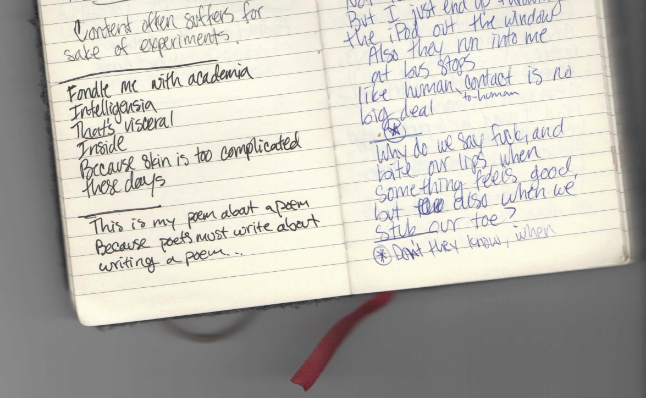 Content often suffers for
sake of experiments
Fondle me with academia
Intelligensia
That's visceral
Inside
Because skin is too complicated
these days
This is my poem about a poem
Because poets must write about
writing a poem...
But I just end up throwing
the iPod out the window
Also they run into me
at bus stops
like human contact is no
to-human
big deal
*
Why do we say fuck, and
bite our lips when
something feels good,
but also when we
stub our toe?
* Don't they know, when